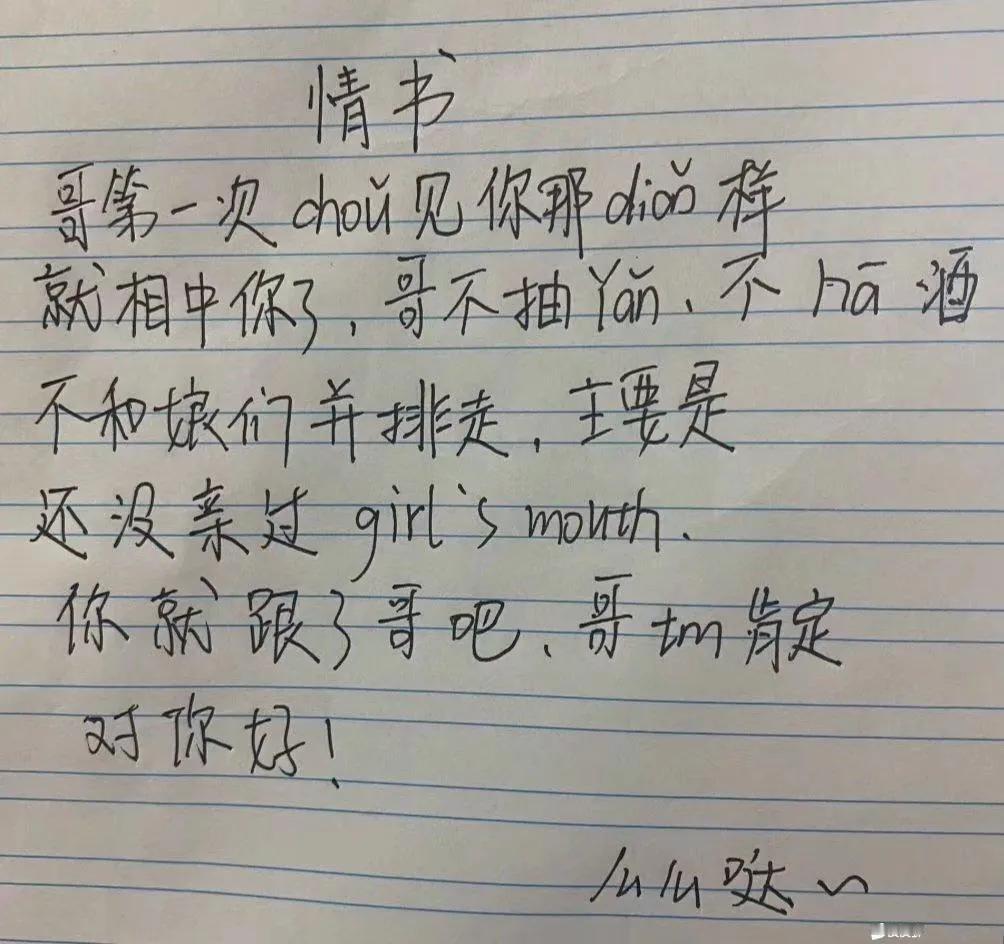 情书
哥第一次 choǔ 见你那 diǒn 样
就相中你了，哥不抽 Yǎn、不 hā 酒
不和娘们并排走，主要是
还没亲过 girl's mouth.
你就跟了哥吧，哥 tm 肯定
对你好！